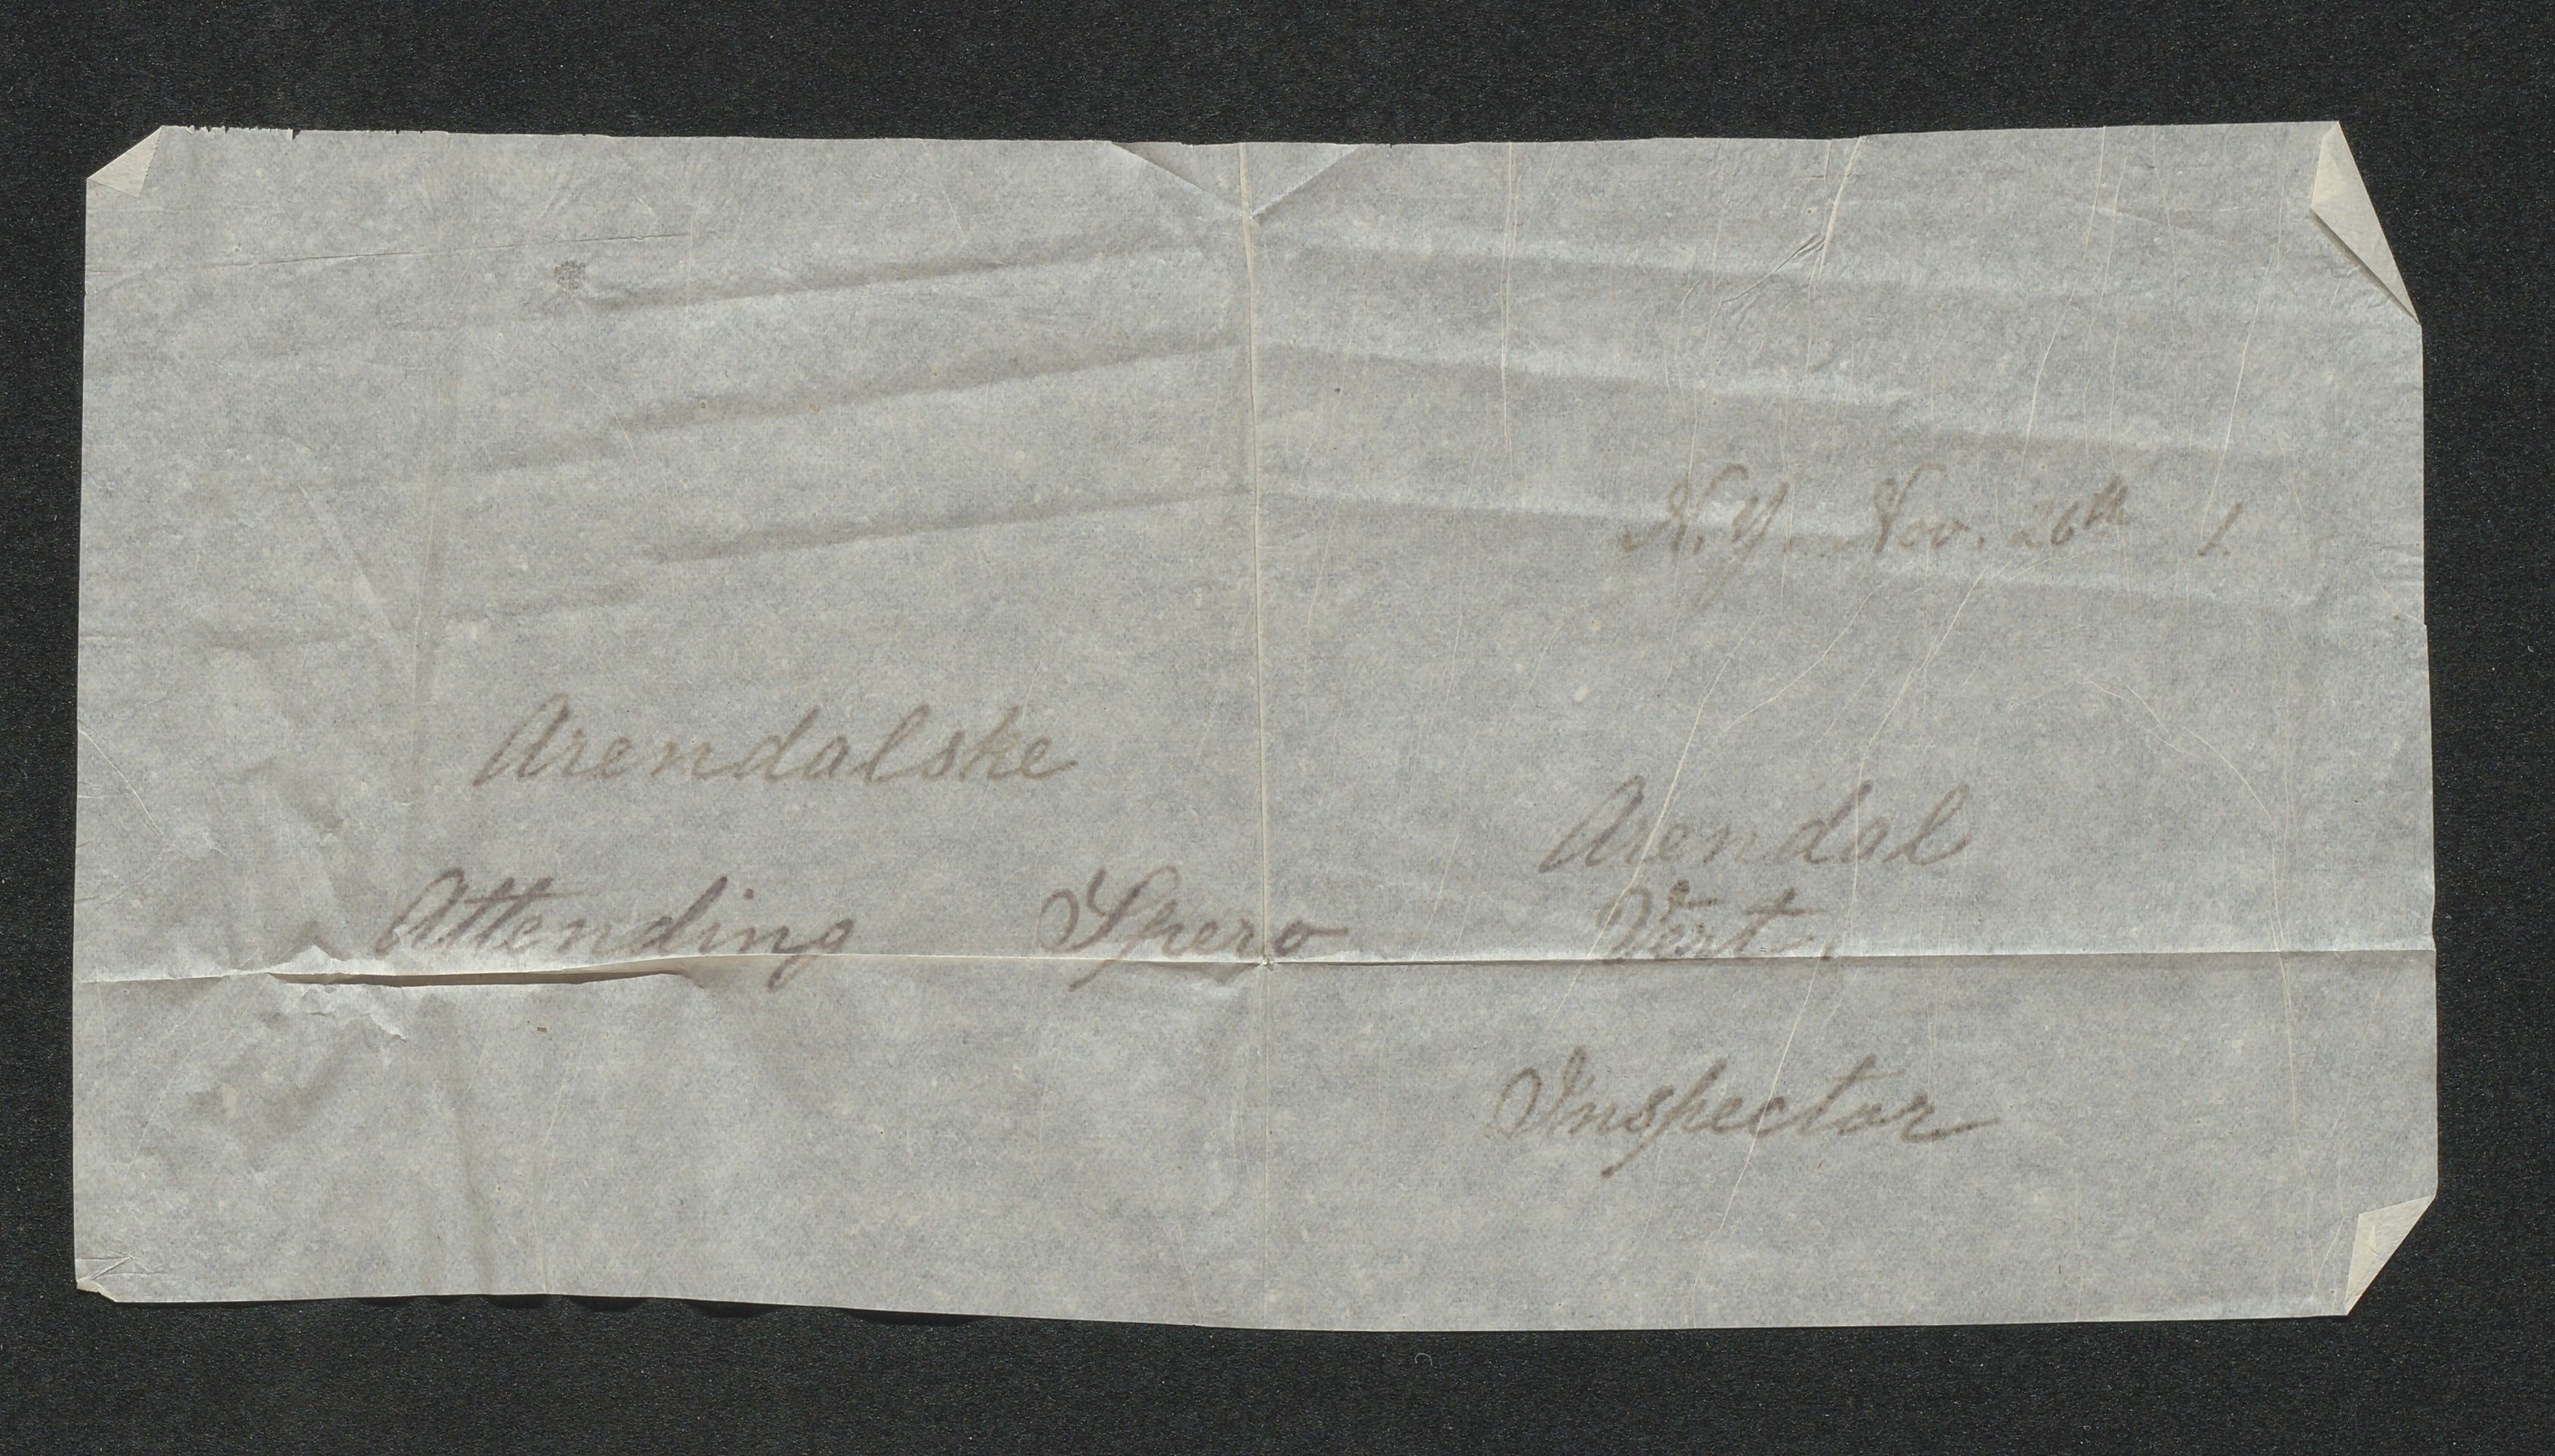 N. Y. Nov. 26th 1.
Arendalske
Arendal
Attending Spero Vert.
Inspector